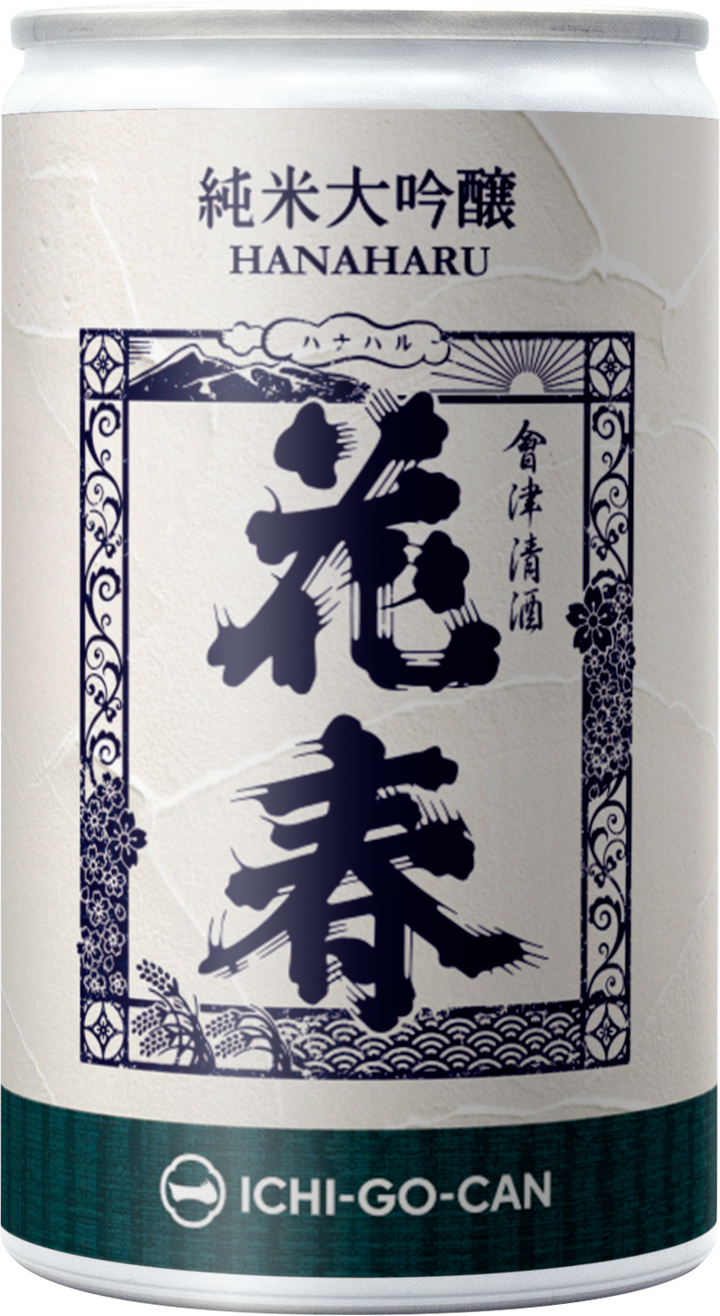 純米大吟醸
HANAHARU
ハナハル
會津清酒
花春
ICHI-GO-CAN